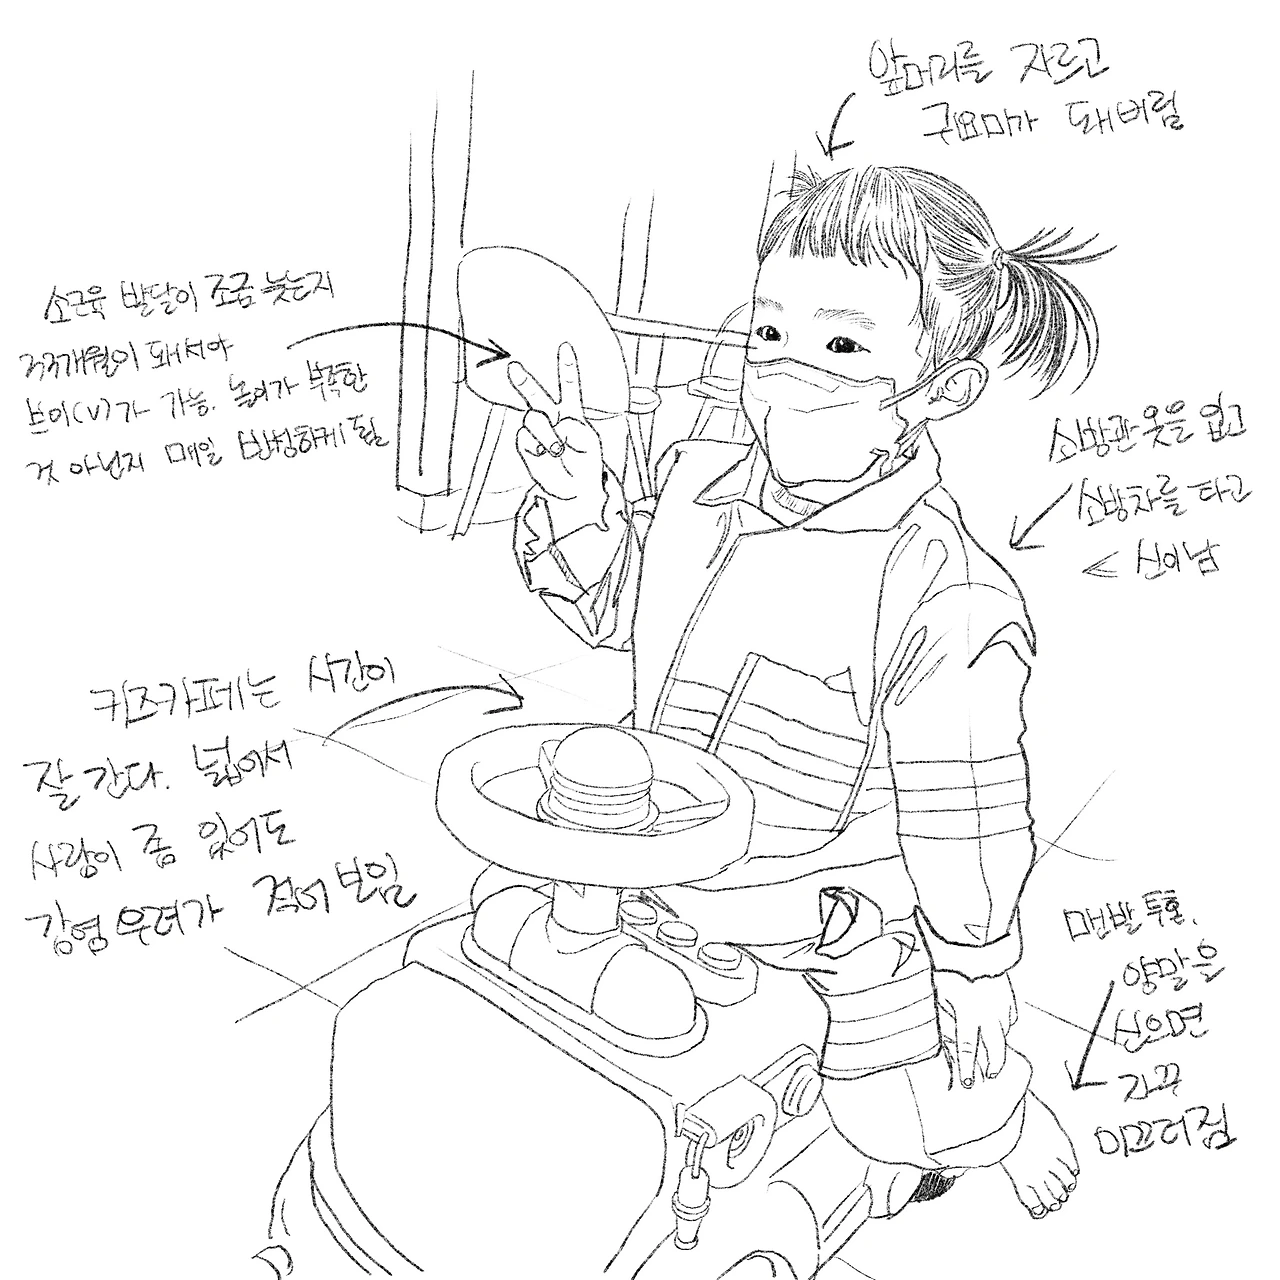 앞머리를 자르고
귀요미가 돼버림
소근육 발달이 조금 늦는지
33개월이 돼서야
브이(V)가 가능. 놀이가 부족한
것 아닌지 매일 반성하게 됨
소방관 옷을 입고
소방차를 타고
< 신이남
키즈카페는 시간이
잘 간다. 넓어서
사람이 좀 있어도
감염 우려가 적어 보임
맨발 투혼.
양말을
신으면
자꾸
미끄러짐